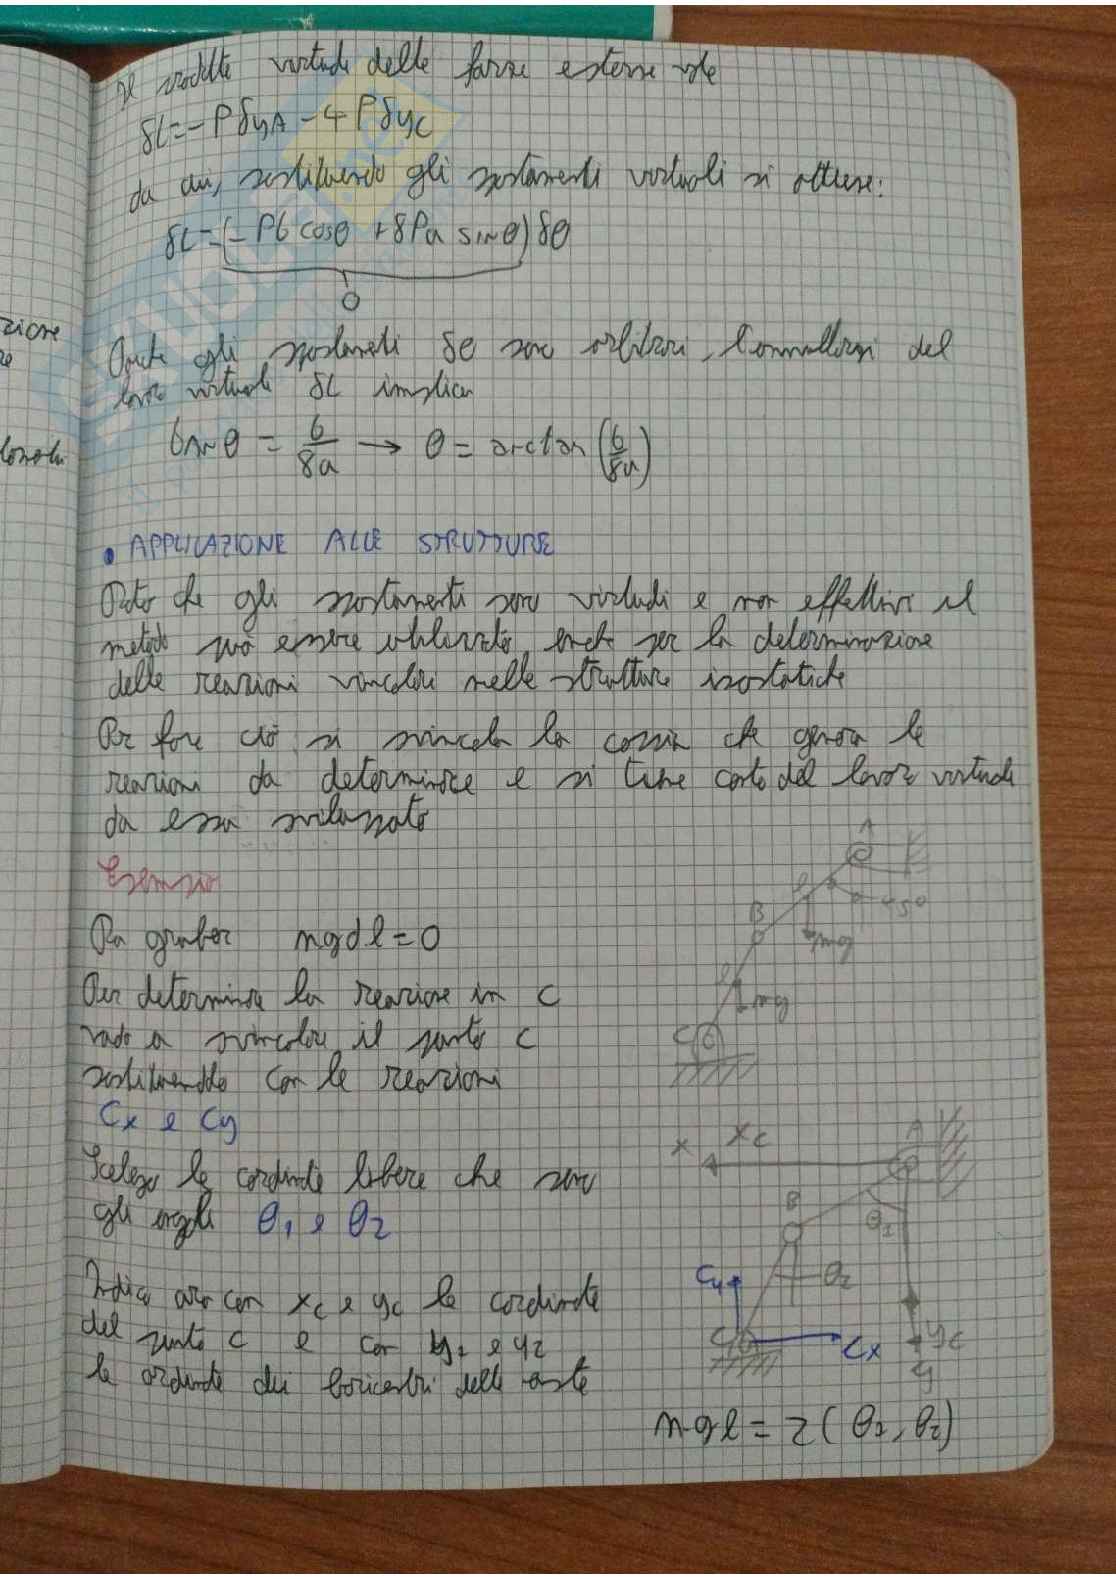 Il prodotto virtuale delle forze esterne vale
δL=-PδyA-4PδyC
da cui, sostituendo gli spostamenti virtuali si ottiene:
δL=(-Pb cosθ +8Pa sinθ)δθ
0
gli spostamenti δθ sono arbitrari, l'annullarsi del
lavoro virtuale δL implica
tanθ = b/8a → θ = arctan (b/8a)
• APPLICAZIONE ALLE STRUTTURE
Dato che gli spostamenti sono virtuali e non effettivi il
metodo può essere utilizzato anche per la determinazione
delle reazioni vincolari nelle strutture isostatiche
Per fare ciò si svincola la coppia che genera le
reazioni da determinare e si tiene conto del lavoro virtuale
da essa sviluppato
Esempio
A
l
45°
B
mg
Da gruber ngdl=0
l
mg
Per determinare la reazione in C
C
vado a svincolare il punto C
sostituendolo con le reazioni
Cx e Cy
x xc A
Scelgo le coordinate libere che sono
gli angoli θ1 e θ2
B θ1
Cy θ2
Indico ora con xc e yc le coordinate
del punto C e con y1 e y2
C Cx yc
le ordinate dei baricentri delle aste
y
n-gl = 2 (θ1, θ2)
zione
re